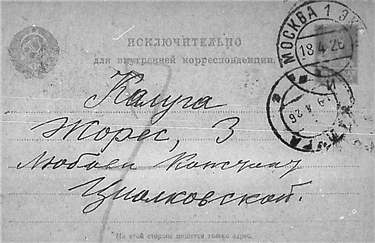 ИСКЛЮЧИТЕЛЬНО
для внутренней корреспонденции.
МОСКВА 1 ЭК
18 4 26
4 26
Калуга
Жорес, 3
Любови Констант
Циолковской.
На этой стороне пишется только адрес.